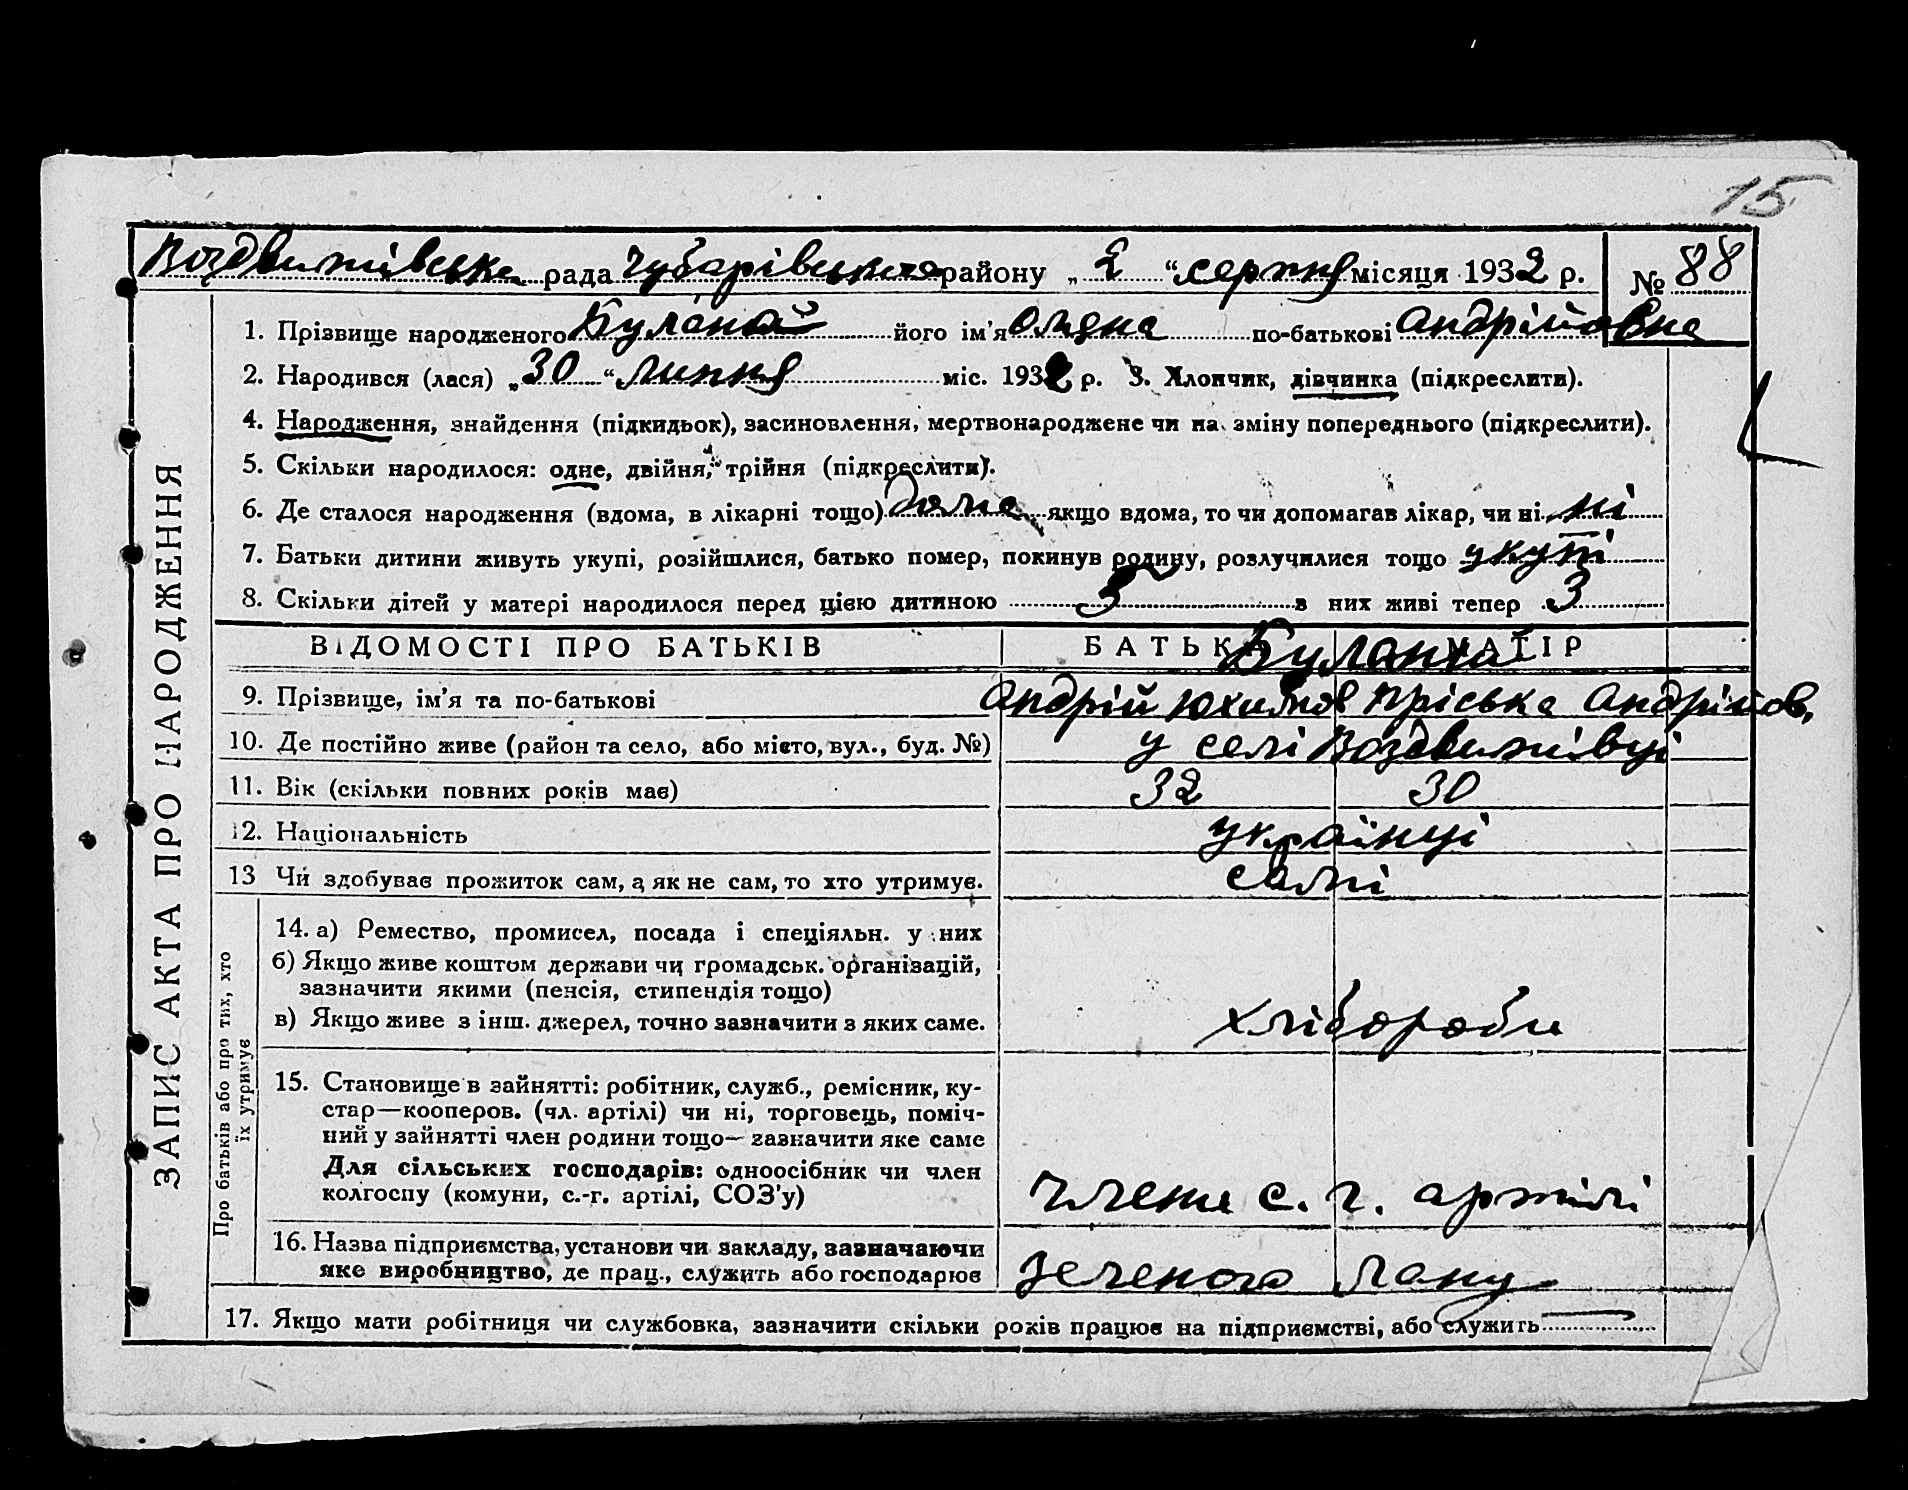 15
Воздвижівська рада Чубарівського району „ 2 “ серпня місяця 1932 р. № 88
1. Прізвище народженого його ім'я по-батькові Андрійовна
2. Народився (лася) „ 30 “ липня міс. 1932 р. 3. Хлопчик, дівчинка (підкреслити).
4. Народження, знайдення (підкидьок), засиновлення, мертвонароджене чи на зміну попереднього (підкреслити).
5. Скільки народилося: одне, двійня, трійня (підкреслити).
6. Де сталося народження (вдома, в лікарні тощо) дома якщо вдома, то чи допомагав лікар, чи ні ні
7. Батьки дитини живуть укупі, розійшлися, батько помер, покинув родину, розлучилися тощо укупі
8. Скільки дітей у матері народилося перед цією дитиною 3 з них живі тепер 3
ВІДОМОСТІ ПРО БАТЬКІВ БАТЬКО МАТІР
9. Прізвище, ім'я та по-батькові Андрій Юхимов Пріська Андрійов.
10. Де постійно живе (район та село, або місто, вул., буд. №) у селі Воздвижівці
11. Вік (скільки повних років має) 32 30
12. Національність українці
13 Чи здобуває прожиток сам, а як не сам, то хто утримує. самі
14. а) Ремество, промисел, посада і спеціяльн. у них
б) Якщо живе коштом держави чи громадськ. організацій,
зазначити якими (пенсія, стипендія тощо)
в) Якщо живе з інш. джерел, точно зазначити з яких саме. хлібороби
15. Становище в зайнятті: робітник, служб., ремісник, ку-
стар—кооперов. (чл. артілі) чи ні, торговець, поміч-
ний у зайнятті член родини тощо— зазначити яке саме
Для сільських господарів: одноосібник чи член
колгоспу (комуни, с.-г. артілі, СОЗ'у) члени с. г. артілі
16. Назва підприємства, установи чи закладу, зазначаючи
яке виробництво, де прац., служить або господарює Зеленого Лану
17. Якщо мати робітниця чи службовка, зазначити скільки років працює на підприємстві, або служить
ЗАПИС АКТА ПРО НАРОДЖЕННЯ
Про батьків або про тих, хто
їх утримує